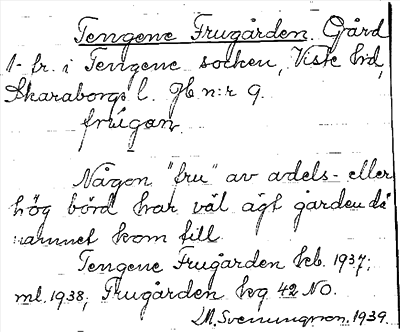 Tengene Frugården. Gård
1 fr. i Tengene socken, Viste hd,
Skaraborgs l. Gb n:r 9.
frúgan.
Någon "fru" av adels- eller
hög börd har väl ägt gården då
namnet kom till.
Tengene Frugården keb. 1937;
ml. 1938; Frugården hg 42 NO.
M. Svenungson. 1939.